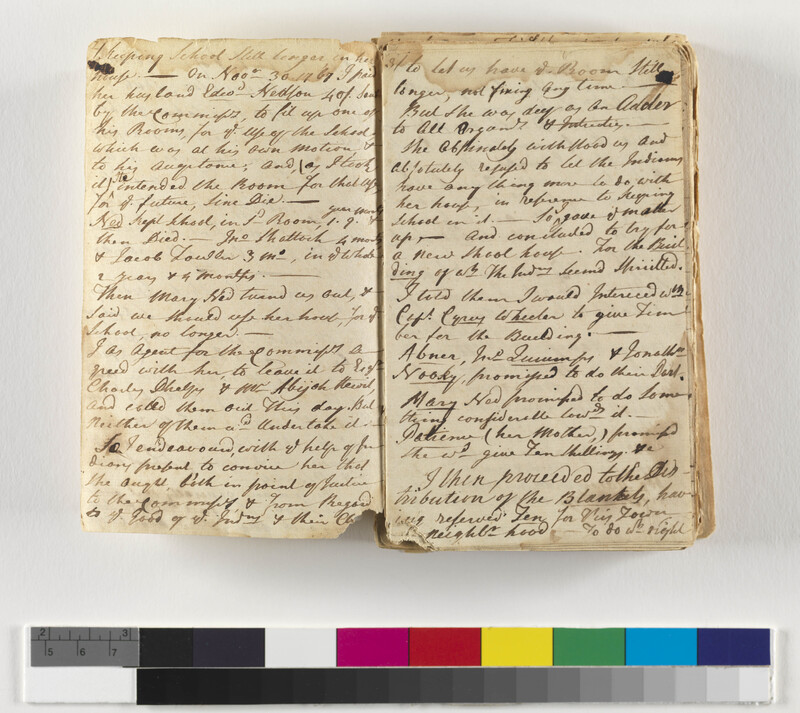 keeping School Still longer in her
house. — On Novr. 30 1769 I paid
her husband Edwd. Nedson 40/. Sent
by the Commissrs, to fit up one of
his Rooms, for ye. Use of the School
which was at his own motion &
to his Acceptance; and (as I took
it) He intended the Room for that Use
for ye. future, Sine Die. —
Ned kept School, in sd. Room, 1. y. &
then Died. — Jno. Shattock 4 months
& Jacob Fowler 3 mo, in ye whole
2 years & 4 months. —
Then Mary Ned turnd us out, &
said we should use her house, for ye
School, no longer. —
I as Agent for the Commissrs a-
greed with her to leave it to Esqr.
Charles Phelps & Mr. Abijah
and called them out This day. But
Neither of them wd. Undertake it.
So I endeavourd, with ye help of In-
dians present to convince her that
She ought, both in point of Justice
to the Commissrs & from Regard
to ye Good of ye. Indns & their Ch
to let us have ye. Room Still
longer, not fixing any time.
But She was deaf as an Adder
to All Argumts. & Intreaties. —
She Obstinately withstood us and
absolutely refused to let the Indians
have any thing more to do, with
her house, in reference to keeping
School in it. — So gave ye matter
up, — and concluded to try for
a new School house. For the Buil-
ding of wh. The Indns Seemd Spirited.
I told them I would Interceed wth
Capt. Cyrus Wheeler to give Tim
ber for the Building. —
Abner, Jno. Quiumps & Jonathn
Nooky, promised to do their Part.
Mary Ned promised to do Some
thing considerable towds it. —
Patience (her Mother,) promisd
She wd. give Ten Shillings &c
I then proceeded to the Dis-
tribution of the Blankets, hav-
ing reserved Ten for this Town
& neighbr hood — To do wh right
2 3
5 6 7